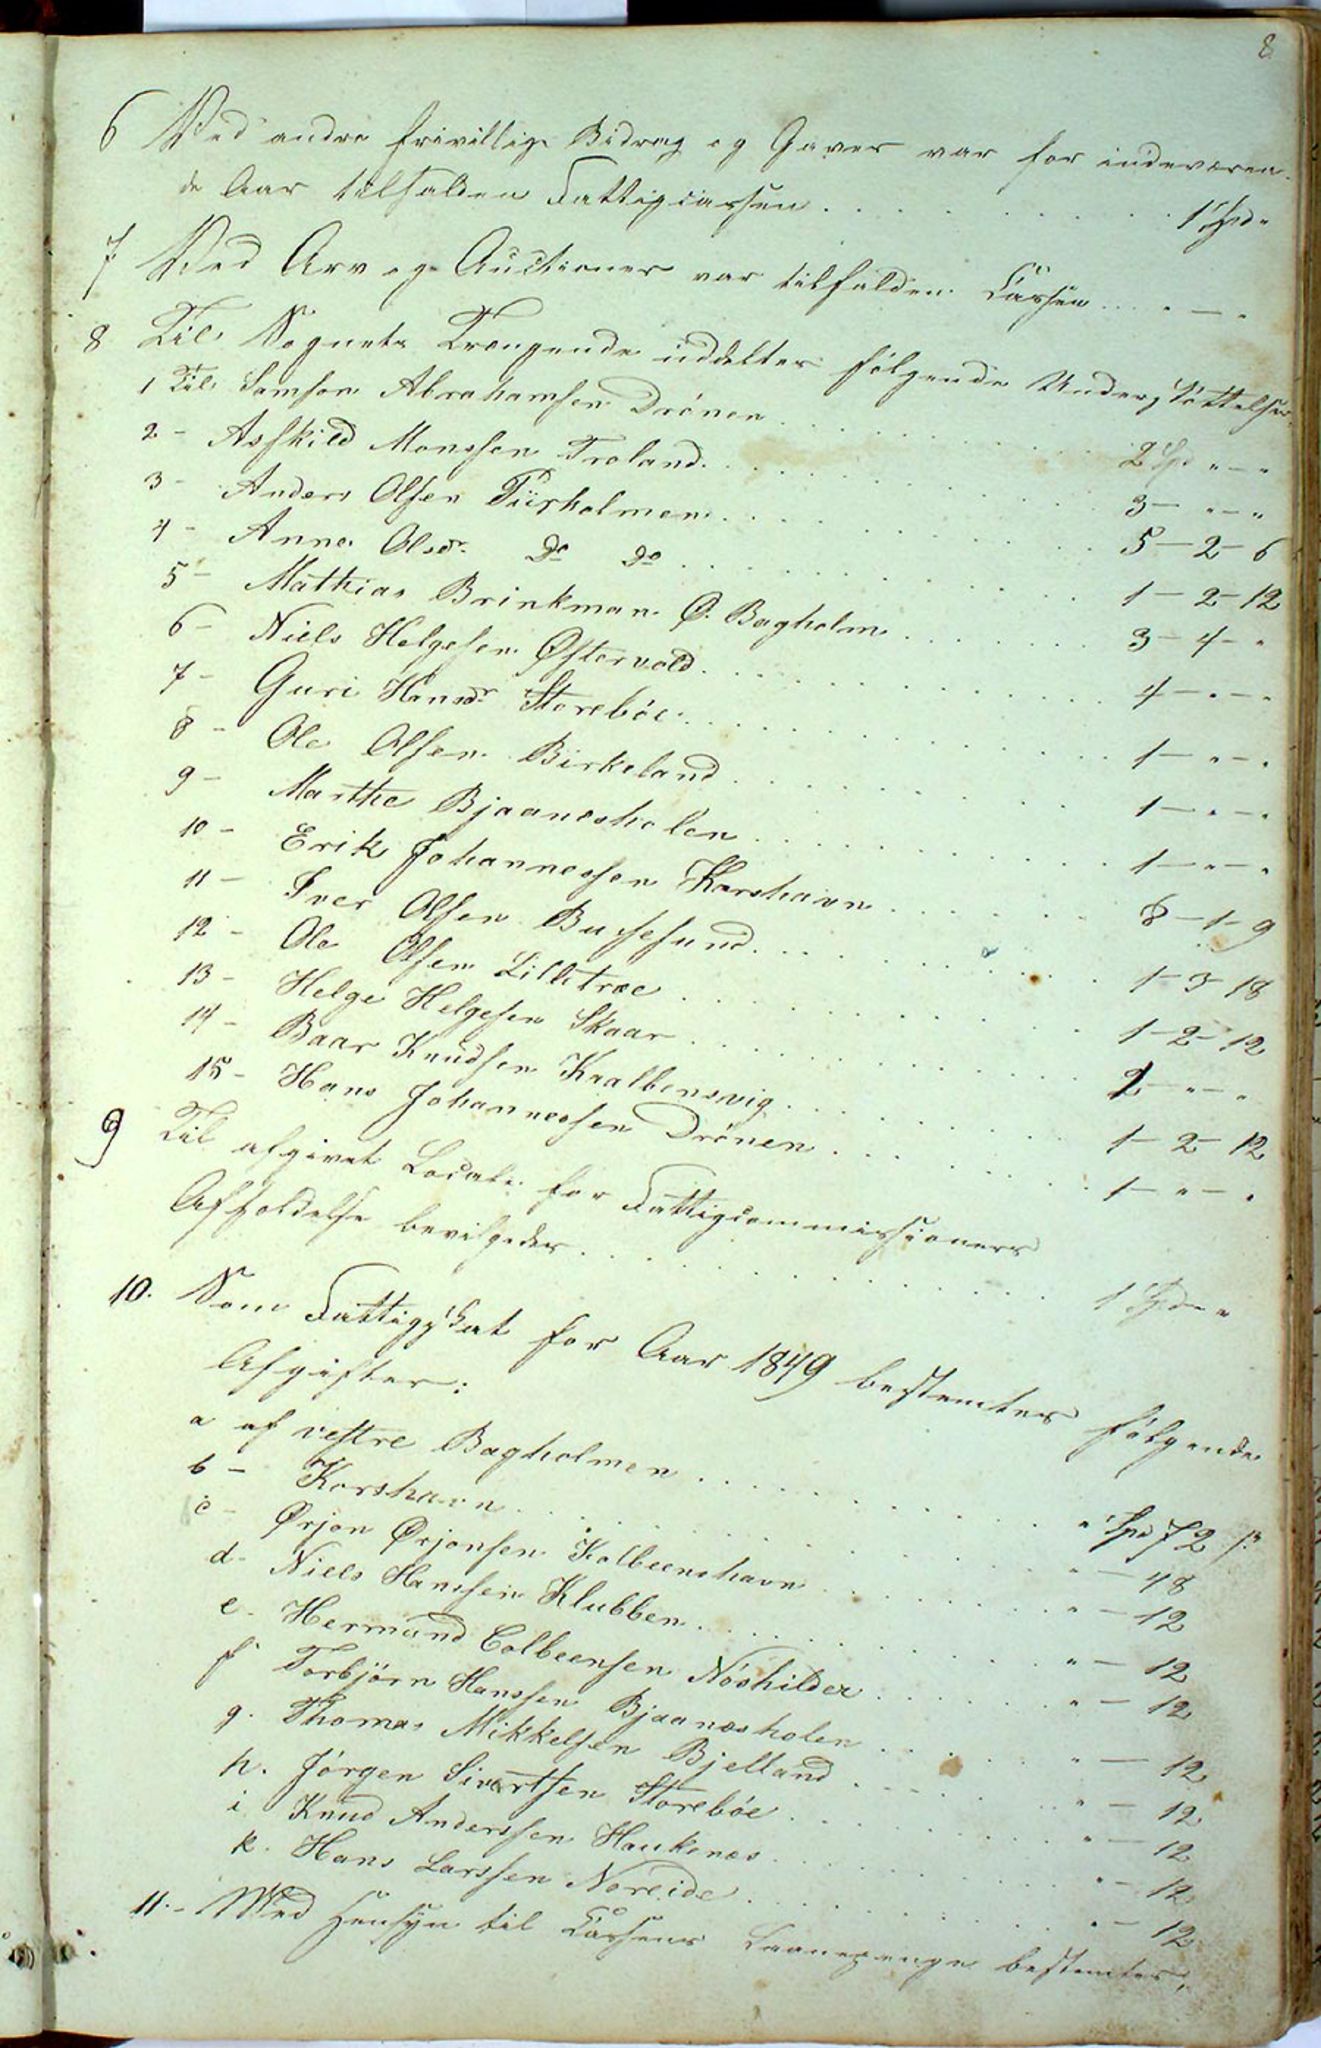 8
6 Ved andre frivillige Bidrag og Gaver var for indeværen-
de Aar tilfalden Fattigcassen . . . . . . . . . . 1 Spd "
7 Ved Arv og Auctioner var tilfalden Cassen . . . . " — "
8 Til Sognets Trængende uddeltes følgende Understøttelser.
1 Til Samson Abrahamsen Drönen . . . . . . . . . 2 Spd " — "
2 - Asskild Monssen Troland . . . . . . . . . 3 — " — "
3 - Anders Olsen Tüxholmen . . . . . . . . . 5 — 2 — 6
4 - Anna Olsdr. Do Do . . . . . . . . . 1 — 2 — 12
5 - Mathias Brinkman Ø. Bagholm . . . . . . 3 — 4 — "
6 - Niels Helgesen Østervold . . . . . . . . . 4 — " — "
7 - Guri Hansdr Storebøe . . . . . . . . . 1 — " — "
8 - Ole Olsen Birkeland . . . . . . . . . 1 — " — "
9 - Marthe Bjaanesholen . . . . . . . . . 1 — " — "
10 - Erik Johannessen Korshavn . . . . . . 8 — 1 — 9
11 - Iver Olsen Buchesund . . . . . . . . . 1 — 3 — 18
12 - Ole Olsen Lilletræe . . . . . . . . . 1 — 2 — 12
13 - Helge Helgesen Skaar . . . . . . . . . 2 — " — "
14 - Baar Knudsen Kralbensvig . . . . . . . . . 1 — 2 — 12
15 - Hans Johannessen Drönen . . . . . . . . . 1 — " — "
9 Til afgivet Locale for Fattigcommissioners
Afholdelse bevilgedes . . . . . . . . . 1 Spd "
10. Som Fattigskat for Aar 1849 bestemtes følgende
Afgifter:
a af vestre Bagholmen . . . . . . . . . " Spd 72 s.
b - Korshavn . . . . . . . . . " — 48
c - Ørjan Ørjansen Kolbeenshavn . . . . . . " — 12
d - Niels Hanssen Klubben . . . . . . . . . " — 12
e - Hermund Colbeensen Nöshilder . . . . . . " — 12
f Torbjörn Hanssen Bjaanesholen . . . . . . " — 12
g. Thomas Mikkelsen Bjelland . . . . . . " — 12
h. Jörgen Sivertsen Storebøe . . . . . . " — 12
i Knud Anderssen Haukenæs . . . . . . " — 12
k. Hans Larssen Noreide . . . . . . " — 12
11. - Med Hensyn til Cassens Laanepenge bestemtes,